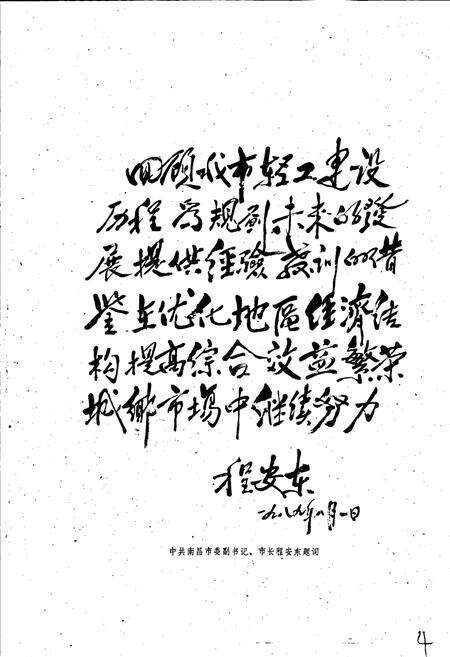 回顾我市轻工建设
历程为规划未来的發
展提供经驗教训的借
鉴在优化地區经濟结
构提高综合效益繁荣
城鄉市場中继续努力
程安东
一九八九年八月一日
中共南昌市委副书记、市长程安东题词
4